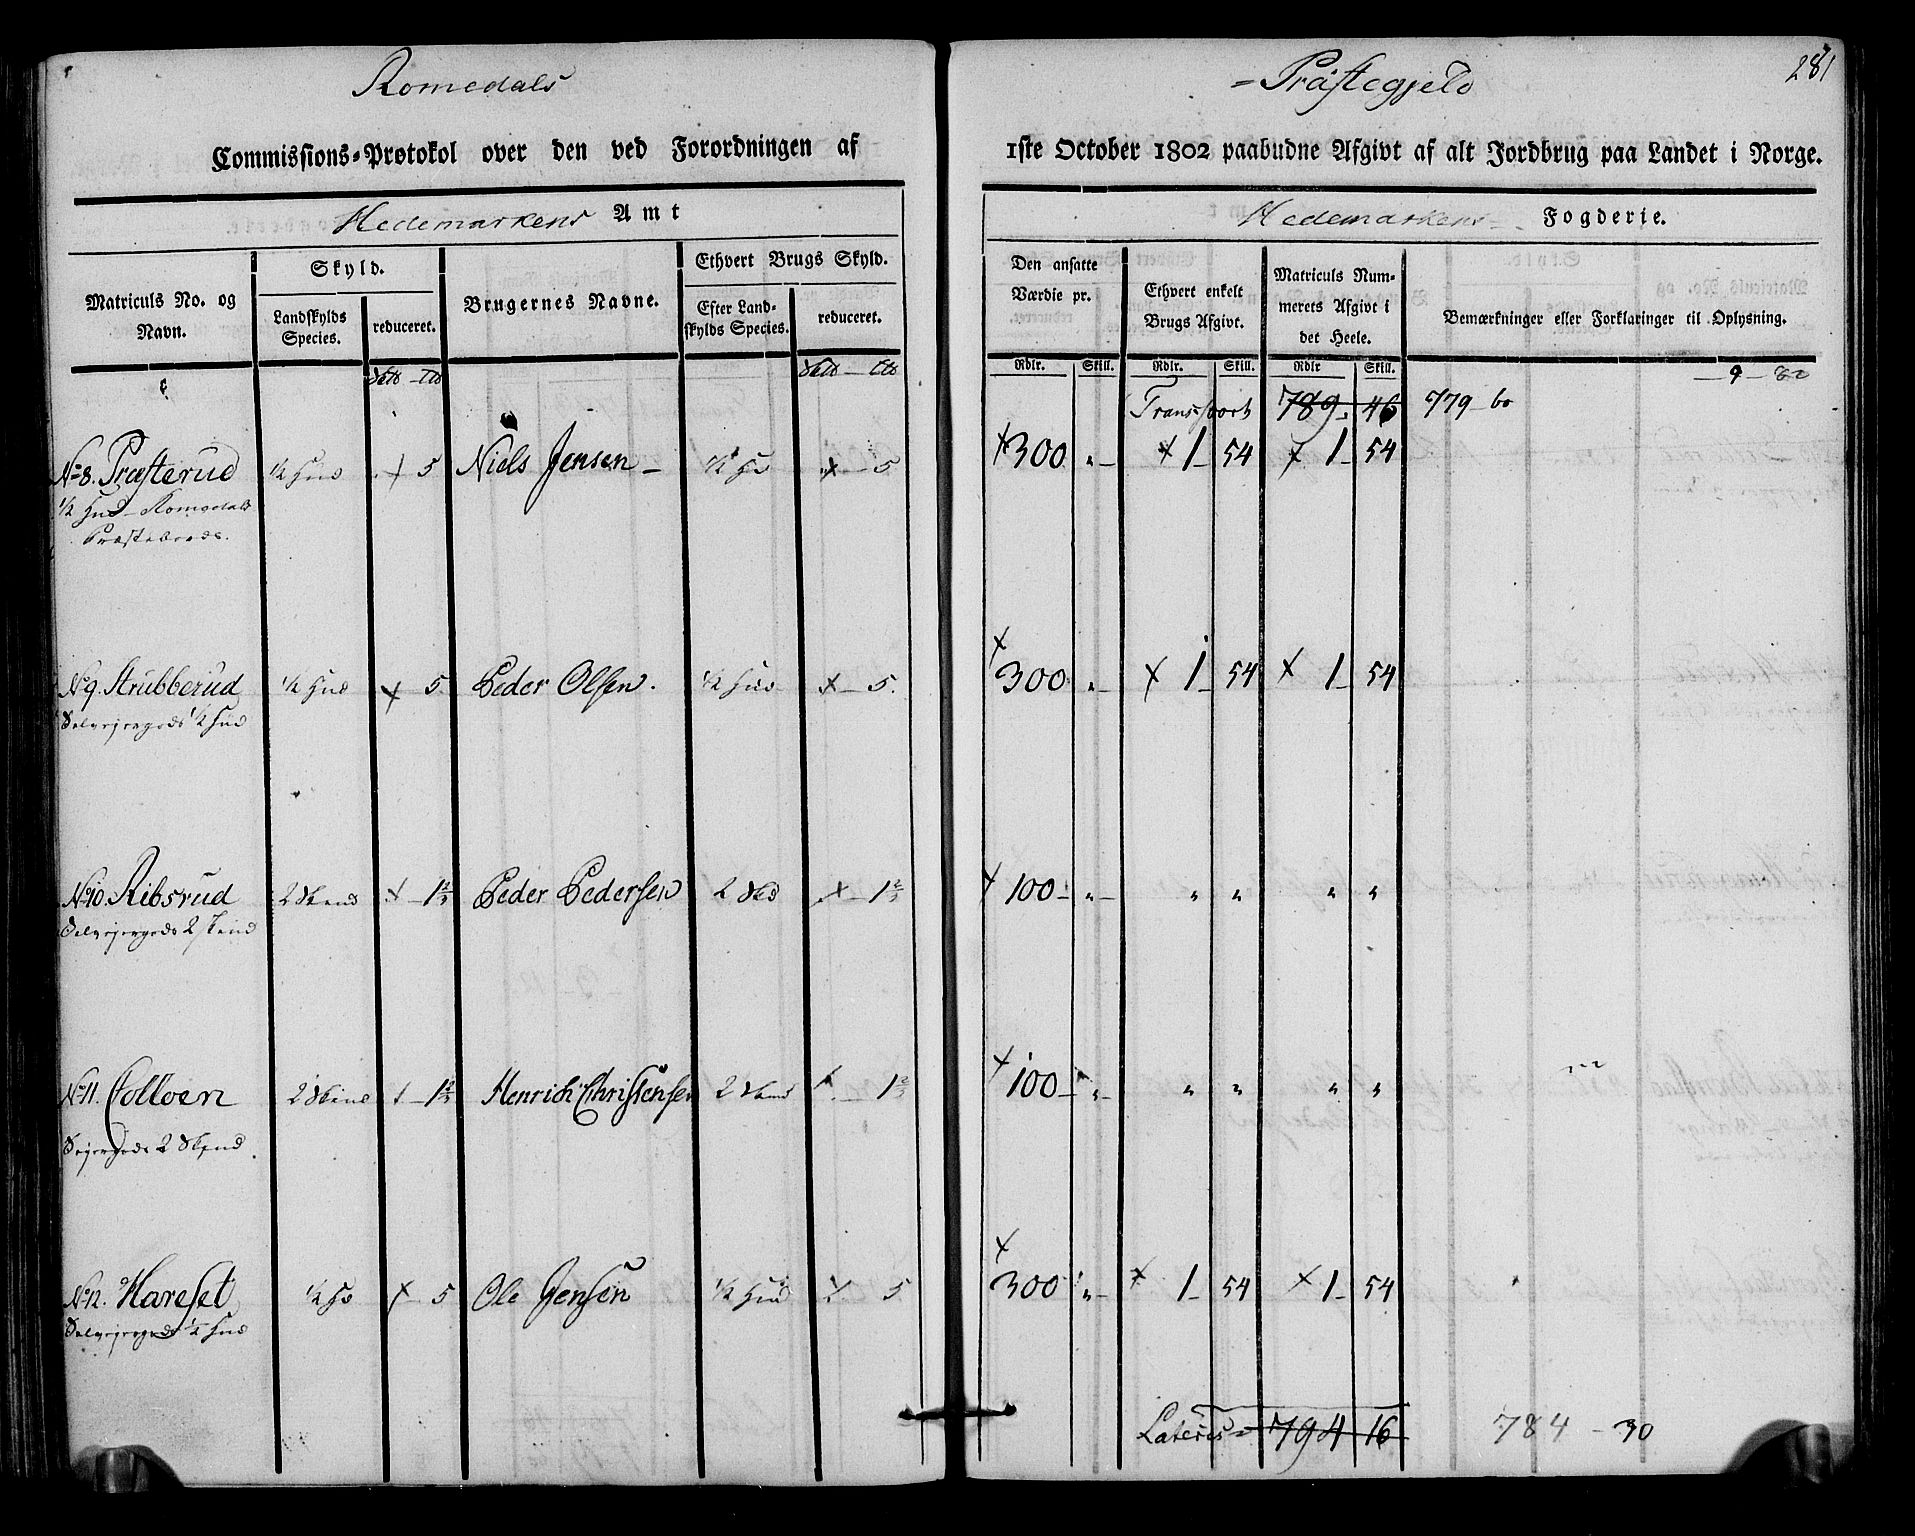 Romedals
Commissions-Protokol over den ved Forordningen af
Hedemarkens Amt
Matriculs No. og Navn.
Skyld.
Landskylds Species.
reduceret.
Brugernes Navne.
Ethvert Brugs Skyld.
Efter Landskylds Species.
reduceret.
No 8. Præsterud ½ Hud 5 Niels Jensen ½ Hd 5
½ Hud Romedals
Præstebords.
No 9. Strubberud ½ Hud 5 Peder Olsen. ½ Hud 5.
Selvejergods ½ Hud
No 10. Ribsrud 2 Skind 1⅔ Peder Pedersen 2 Skd 1⅔
Selvejergods 2 Skind
No 11. 2 Skind 1⅔ Henrich Christensen 2 Skind 1⅔
Sejergods 2 Skind
No 12. Hareset ½ Hd 5 Ole Jensen ½ Hud 5
Selvejergods ½ Hud
= Præstegjeld
281
1ste October 1802 paabudne Afgivt af alt Jordbrug paa Landet i Norge.
Hedemarkens Fogderie.
Den ansatte Værdie pr.
Ethvert enkelt Brugs Afgivt.
Matriculs Nummerets Afgivt i det Heele.
Bemærkninger eller Forklaringer til Oplysning.
Rdlr. Skill. Rdlr. Skill. Rdlr Skill.
Transport 789. 46 779 - 60
300 „ 1 54 1 54
300 „ 1 54 1 54
100 „ „ „ „ „
100 „ „ „ „ „
300 „ 1 54 1 54
Lateris = 794 16 784 - 30